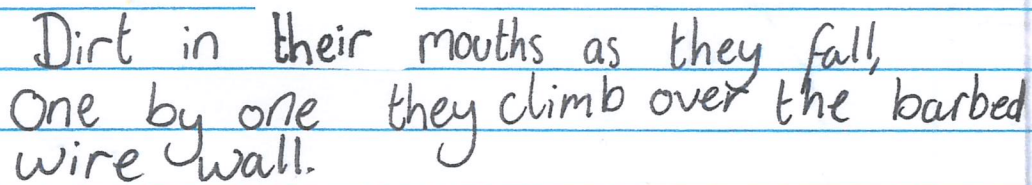 Dirt in their mouths as they fall,
One by one they climb over the barbed
wire wall.